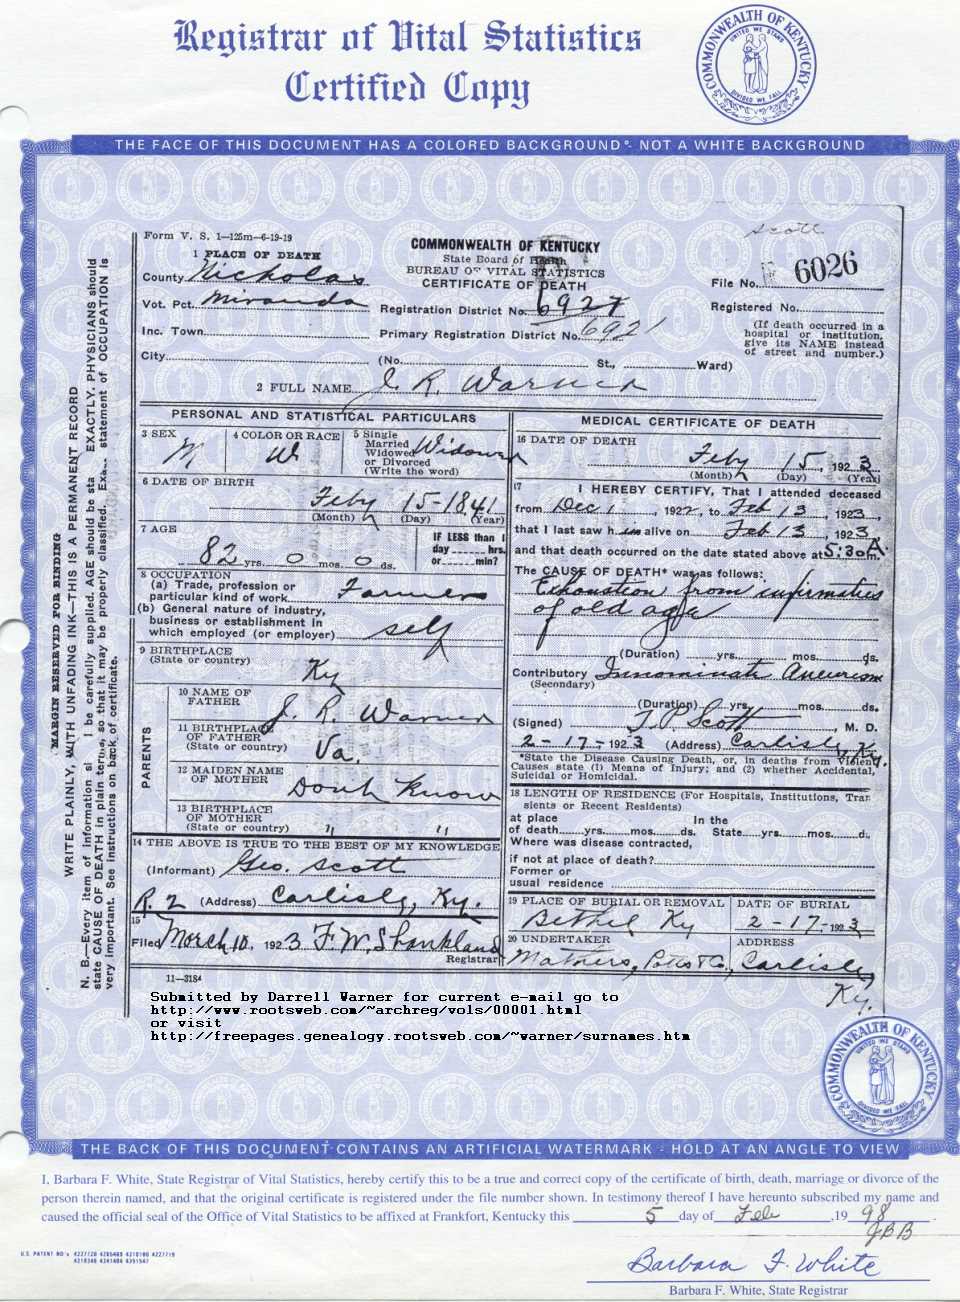 Registrar of Vital Statistics
Certified Copy
COMMONWEALTH OF KENTUCKY
UNITED WE STAND
DIVIDED WE FALL
THE FACE OF THIS DOCUMENT HAS A COLORED BACKGROUND • NOT A WHITE BACKGROUND
Scott
Form V. S. 1—125m—6-19-19
1 PLACE OF DEATH
County Nicholas
Vot. Pct. Miranda
Inc. Town
City (No. St., Ward)
COMMONWEALTH OF KENTUCKY
State Board of Health
BUREAU OF VITAL STATISTICS
CERTIFICATE OF DEATH
Registration District No. 6927
Primary Registration District No. 6921
File No. 6026
Registered No.
(If death occurred in a
hospital or institution,
give its NAME instead
of street and number.)
2 FULL NAME J. R. Warner
MARGIN RESERVED FOR BINDING
WRITE PLAINLY, WITH UNFADING INK—THIS IS A PERMANENT RECORD
N. B.—Every item of information should be carefully supplied. AGE should be stated EXACTLY. PHYSICIANS should
state CAUSE OF DEATH in plain terms, so that it may be properly classified. Exact statement of OCCUPATION is
very important. See instructions on back of certificate.
PERSONAL AND STATISTICAL PARTICULARS
3 SEX M
4 COLOR OR RACE W
5 Single
Married
Widowed
or Divorced
(Write the word) Widowed
6 DATE OF BIRTH
Feby 15-1841
(Month) (Day) (Year)
7 AGE
82 yrs. 0 mos. 0 ds.
IF LESS than 1
day hrs.
or min?
8 OCCUPATION
(a) Trade, profession or
particular kind of work Farmer
(b) General nature of industry,
business or establishment in
which employed (or employer) self
9 BIRTHPLACE
(State or country) Ky
PARENTS
10 NAME OF
FATHER J. R. Warner
11 BIRTHPLACE
OF FATHER
(State or country) Va.
12 MAIDEN NAME
OF MOTHER Dont Know
13 BIRTHPLACE
OF MOTHER
(State or country) " "
14 THE ABOVE IS TRUE TO THE BEST OF MY KNOWLEDGE
(Informant) Geo. Scott
R. 2 (Address) Carlisle, Ky.
15
Filed March 10, 1923 F. W. Shankland
Registrar
11—3184
MEDICAL CERTIFICATE OF DEATH
16 DATE OF DEATH
Feby 15, 1923
(Month) (Day) (Year)
17 I HEREBY CERTIFY, That I attended deceased
from Dec 1, 1922, to Feb 13, 1923,
that I last saw h im alive on Feb 13, 1923
and that death occurred on the date stated above at 5:30 A m.
The CAUSE OF DEATH* was as follows:
Exhaustion from infirmaties
of old age
(Duration) yrs. mos. ds.
Contributory Innominate Aneurism
(Secondary)
(Duration) yrs. mos. ds.
(Signed) T. P. Scott M. D.
2-17-, 1923 (Address) Carlisle, Ky.
*State the Disease Causing Death, or, in deaths from Violent
Causes state (1) Means of Injury; and (2) whether Accidental,
Suicidal or Homicidal.
18 LENGTH OF RESIDENCE (For Hospitals, Institutions, Tran
sients or Recent Residents)
at place In the
of death yrs. mos. ds. State yrs. mos. d
Where was disease contracted,
if not at place of death?
Former or
usual residence
19 PLACE OF BURIAL OR REMOVAL
Bethel Ky
DATE OF BURIAL
2-17-1923
20 UNDERTAKER
Mathers, Potts & Co,
ADDRESS
Carlisle
Ky.
Submitted by Darrell Warner for current e-mail go to
http://www.rootsweb.com/~archreg/vols/00001.html
or visit
http://freepages.genealogy.rootsweb.com/~warner/surnames.htm
COMMONWEALTH OF KENTUCKY
UNITED WE STAND
DIVIDED WE FALL
THE BACK OF THIS DOCUMENT CONTAINS AN ARTIFICIAL WATERMARK - HOLD AT AN ANGLE TO VIEW
I, Barbara F. White, State Registrar of Vital Statistics, hereby certify this to be a true and correct copy of the certificate of birth, death, marriage or divorce of the
person therein named, and that the original certificate is registered under the file number shown. In testimony thereof I have hereunto subscribed my name and
caused the official seal of the Office of Vital Statistics to be affixed at Frankfort, Kentucky this 5 day of Feb, 19 98.
JBB
U.S. PATENT NO's 4227720 4265469 4210100 4227719
4210346 4341404 4351547
Barbara F. White
Barbara F. White, State Registrar